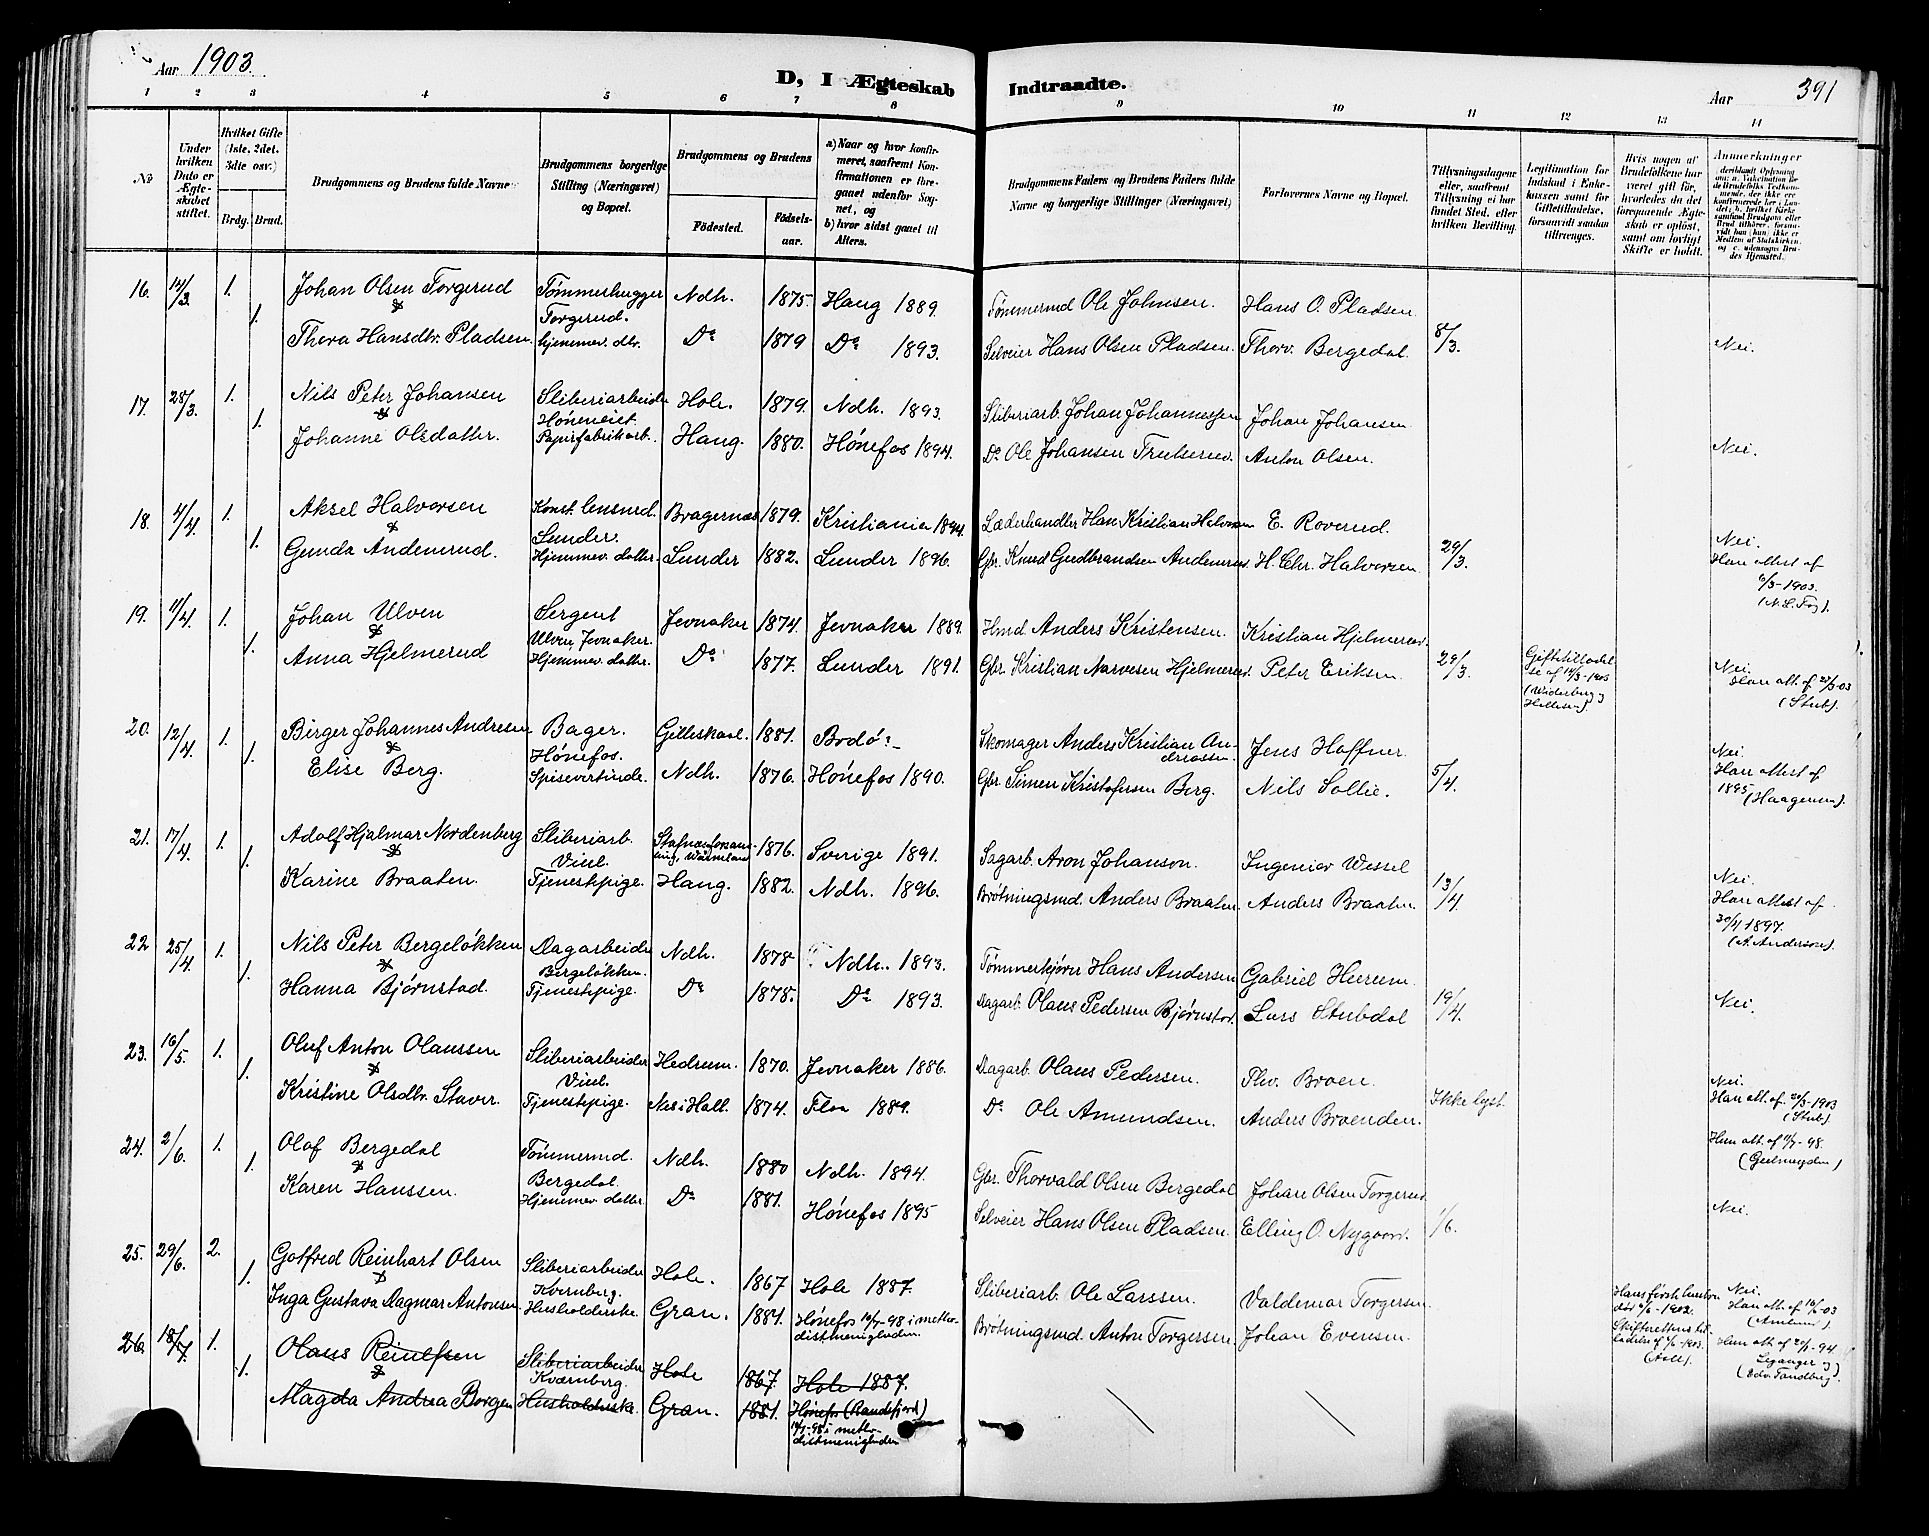 Aar 1903.
D, I Ægteskab Indtraadte.
Aar 391
1 2 3 4 5 6 7 8 9 10 11 12 13 14
No
Under hvilken Dato er Ægteskabet stiftet.
Hvilket Gifte (1ste, 2det, 3die osv.)
Brdg. Brud.
Brudgommens og Brudens fulde Navne
Brudgommens borgerlige Stilling (Næringsvei) og Bopæl.
Brudgommens og Brudens
Födested.
Födselsaar.
a) Naar og hvor konfirmeret, saafremt Konfirmationen er foregaaet udenfor Sognet, og
b) hvor sidst gaaet til Alters.
Brudgommens Faders og Brudens Faders fulde Navne og borgerlige Stillinger (Næringsvei)
Forlovernes Navne og Bopæl.
Tillysningsdagene eller, saafremt Tillysning ei har fundet Sted, efter hvilken Bevilling.
Legitimation for Indskud i Enkekassen samt for Giftetilladelse, forsaavidt saadan tiltrænges.
Hvis nogen af Brudefolkene har været gift för, hvorledes da det foregaaende Ægteskab er oplöst, samt om lovligt Skifte er holdt.
Anmerkninger
16. 14/3 1. Johan Olsen Torgerud Tømmerhugger Torgerud. Ndh. 1875 Haug 1889. Tømmermd Ole Johnsen. Hans O. Pladsen.
1. Thora Hansdtr. Pladsen. hjemmev. dtr. Do 1879 Do 1893. Selveier Hans Olsen Pladsen. Thorv. Bergedal. 8/3. Nei.
17. 28/3. 1. Nils Peter Johansen Sliberiarbeider Hole. 1879. Ndh. 1893. Sliberiarb. Johan Johannessen Johan Johansen
1. Johanne Olsdatter. Papirfabrikarb. Haug. 1880. Hønefos 1894. Do Ole Johansen Anton Olsen. Nei.
18. 4/4 1. Aksel Halvorsen Konst. lensmd. Lunder. Bragernæs 1879. Kristiania 1894. Læderhandler Han Kristian Halvorsen E. Roverud.
1. Gunda Andemrud. Hjemmev. datter. Lunder 1882. Lunder 1896. Gbr. Knud Gudbrandsen Andemrud. H. Chr. Halvorsen 29/3. Nei. Han attest af 6/3-1903.
19. 11/4. 1. Johan Ulven Sergent Ulven, Jevnaker. Jevnaker 1874. Jevnaker 1889. Hmd. Anders Kristensen. Kristian Hjelmerud.
1. Anna Hjelmerud Hjemmev. datter. Do 1877. Lunder 1891. Gbr. Kristian Narvesen Hjelmerud. Peter Eriksen. 29/3. Giftetilladelse af 14/3-1903 Nei. Han att. af 27/3-03 (Stub).
20. 12/4. 1. Birger Johannes Andresen Bager. Hønefos. Gilleskaal. 1881. Bodø? - Skomager Anders Kristian Andreassen. Jens Haffner.
1. Elise Berg. Spisevertinde. Ndh. 1876. Hønefos 1890. Gbr. Simen Kristofersen Berg. Nils Sollie. 5/4. Nei. Han attest af 1895 (Haagensen).
21. 17/4. 1. Adolf Hjalmar Nordenberg Sliberiarb. Viul. 1876. Sverige 1891. Sagarb. Aron Johanson. Ingeniør Wessel
1. Karine Braaten. Tjenestepige. Haug. 1882. Ndh. 1896. Brøtningsmd. Anders Braaten. Anders Braaten 13/4. Nei. Han attest af 30/4 1897. (A. Anderson).
22 25/4 1. Nils Peter Bergeløkken Dagarbeider Bergeløkken. Ndh. 1878 Ndh. 1893. Tømmerkjører Hans Andersen Gabriel Hurum.
1. Hanna Bjørnstad. Tjenestepige. Do 1878. Do 1893. Dagarb. Olaus Pedersen Bjørnstad. Lars Stubdal 19/4. Nei.
23. 16/5. 1. Oluf Anton Olaussen Sliberiarbeider Viul. Hedrum. 1870. Jevnaker 1886. Dagarb. Olaus Pedersen. Thv. Braen.
1. Kristine Olsdtr. Staver. Tjenestepige. Nes i Hall. 1874. Flaa 1889. Do Ole Amundsen. Anders Braenden. Ikke lyst. Nei. Han att. af 20/3-1903 (Stub)
Hun att. af 11/7-98. (Geelmuyden)
24. 2/6. 1. Olaf Bergedal Tømmermd. Bergedal. Ndh. 1880 Ndh. 1894. Gbr. Thorvald Olsen Bergedal Johan Olsen Torgerud.
1. Karen Hanssen. Hjemmev. datter. Do 1881. Hønefos 1895 Selveier Hans Olsen Pladsen. Elling O. Nygaard. 1/6. Nei.
25. 29/6. 2. Gotfred Reinhart Olsen Sliberiarbeider Kvernberg. Hole. 1867 Hole 1887. Sliberiarb. Ole Larssen. Valdemar Torgersen.
1. Inga Gustava Dagmar Antonsen. Husholderske. Gran. 1881. Hønefos 10/7-98 i metodistmenigheden. Brøtningsmd. Anton Torgersen. Johan Evensen. Hans første hustru død 6/6-1902. Skifterettens tilladelse af 4/6-1903. Nei. Han att. af 16/6-03
Hun att. af 20/1-94 Leganger &
26. 18/7. 1. Olaus Sliberiarbeider Kværnberg. Hole 1867 Hole 1887.
1. Magda Andrea Borgen Husholderske Gran. 1881. Hønefos (Randsfjord) 10/7-98 i metodistmenigheden